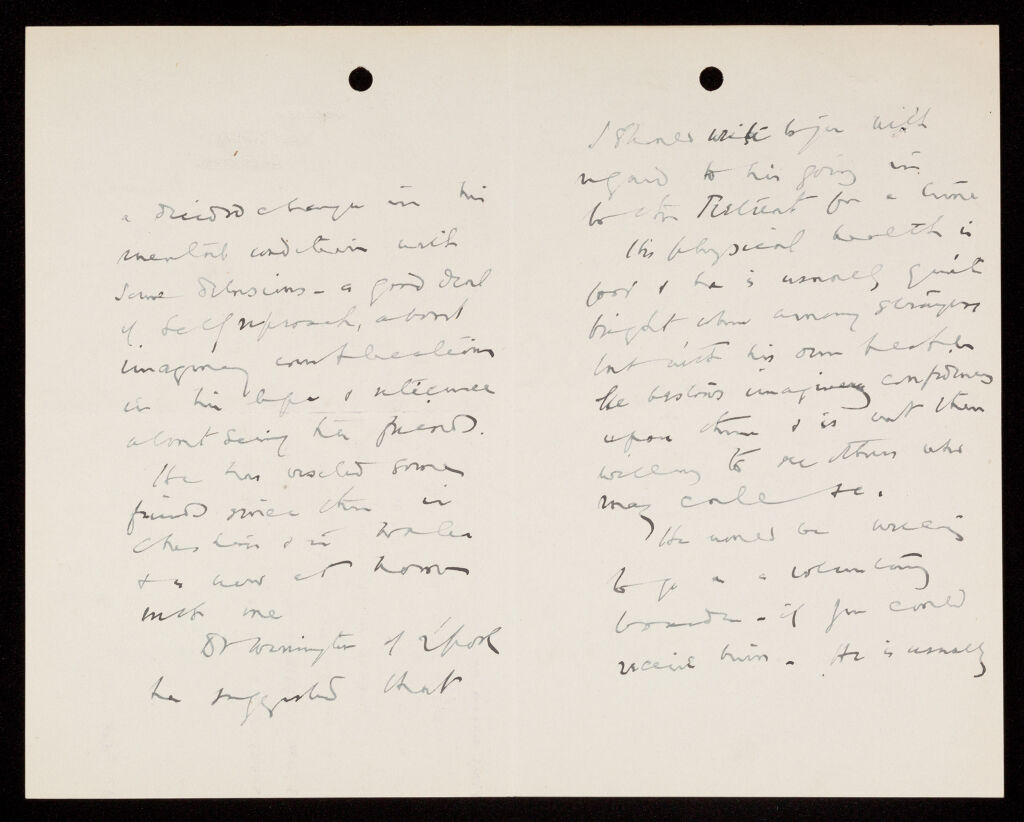 a decided change in his
mental condition with
some delusions - a good deal
of self reproach, about
imaginary
in his life & reticence
about seeing his friends.
He has visited some
friends since then in
Cheshire & in Wales
& is now at home
with me
Dr Warrington of L'pool
he suggested that
I should write to you with
regard to his going in
to the Retreat for a time
His physical health is
good & he is usually quite
bright when among strangers
but with his own
he bestows imaginary confidences
upon them & is not then
willing to see others who
may call &c.
He would be willing
to go as a voluntary
boarder - if you could
receive him - He is usually